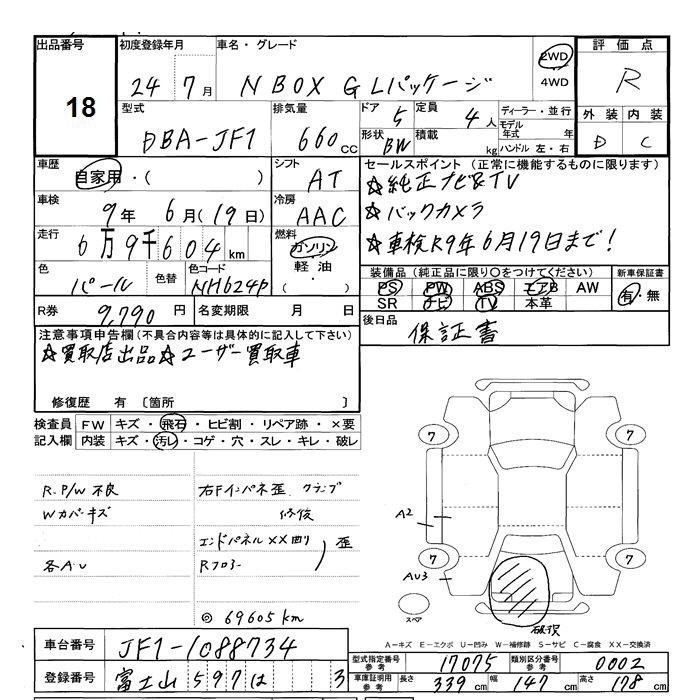 出品番号 初度登録年月 車名・グレード 2WD 4WD 評価点
18 24 7月 N BOX G Lパッケージ R
型式 排気量 ドア 5 定員 4人 ディーラー・並行 外装 内装
DBA-JF1 660cc 形状 BW 積載 kg モデル年式 年 ハンドル 左・右 D C
車歴 シフト セールスポイント（正常に機能するものに限ります）
自家用・（ ） AT ☆純正ナビ&TV
車検 冷房 ☆バックカメラ
9年 6月（19日） AAC ☆車検R9年6月19日まで！
走行 燃料
6万9千604km ガソリン 軽油 （・）
色 色替 色コード 装備品（純正品に限り○をつけてください） 新車保証書
パール NH624P PS PW ABS エアB AW 有・無
SR ナビ TV 本革
R券 9,790円 名変期限 月 日 後日品
保証書
注意事項申告欄（不具合内容等は具体的に記入して下さい）
☆買取店出品☆ユーザー買取車
修復歴 有〔箇所 〕
検査員 FW キズ・飛石・ヒビ割・リペア跡・×要
記入欄 内装 キズ・汚レ・コゲ・穴・スレ・キレ・破レ
R.P/W 不良 右Fインパネ歪 クランプ
Wカバーキズ 修復
エンドパネルXX回り 歪
各AU Rフロアー
◎69605km
7 7
A2
7 7
AU3
スペア 破決
A－キズ E－エクボ U－凹み W－補修跡 S－サビ C－腐食 XX－交換済
車台番号 JF1-1088734 型式指定番号 参考 17075 類別区分番号 参考 0002
登録番号 富士山 597 は 3 車庫証明用 参考 長さ 339cm 幅 147cm 高さ 178cm